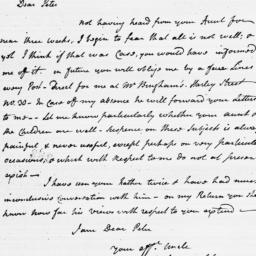 Dear Peter
not having heard from your Aunt for
near three weeks, I begin to fear that all is not well; or
yet I think if that was Case, you would have informed
me of it. in future you will oblige me by a few Lines
every Post. Direct for me at Mr Bingham's. Harley Street
no. 30. In case of my absence he will forward your Letters
to me. Let me know particularly whether your aunt &
the Children are well. Suspense on these Subjects is always
painful & never useful, except perhaps on very particular
occasions; & which with respect to me do not at present
exist.
I have seen your Father twice & have had some
inconclusive Conversation with him. on my Return you shall
know how far his views with respect to you
I am Dear Peter
your affte. Uncle